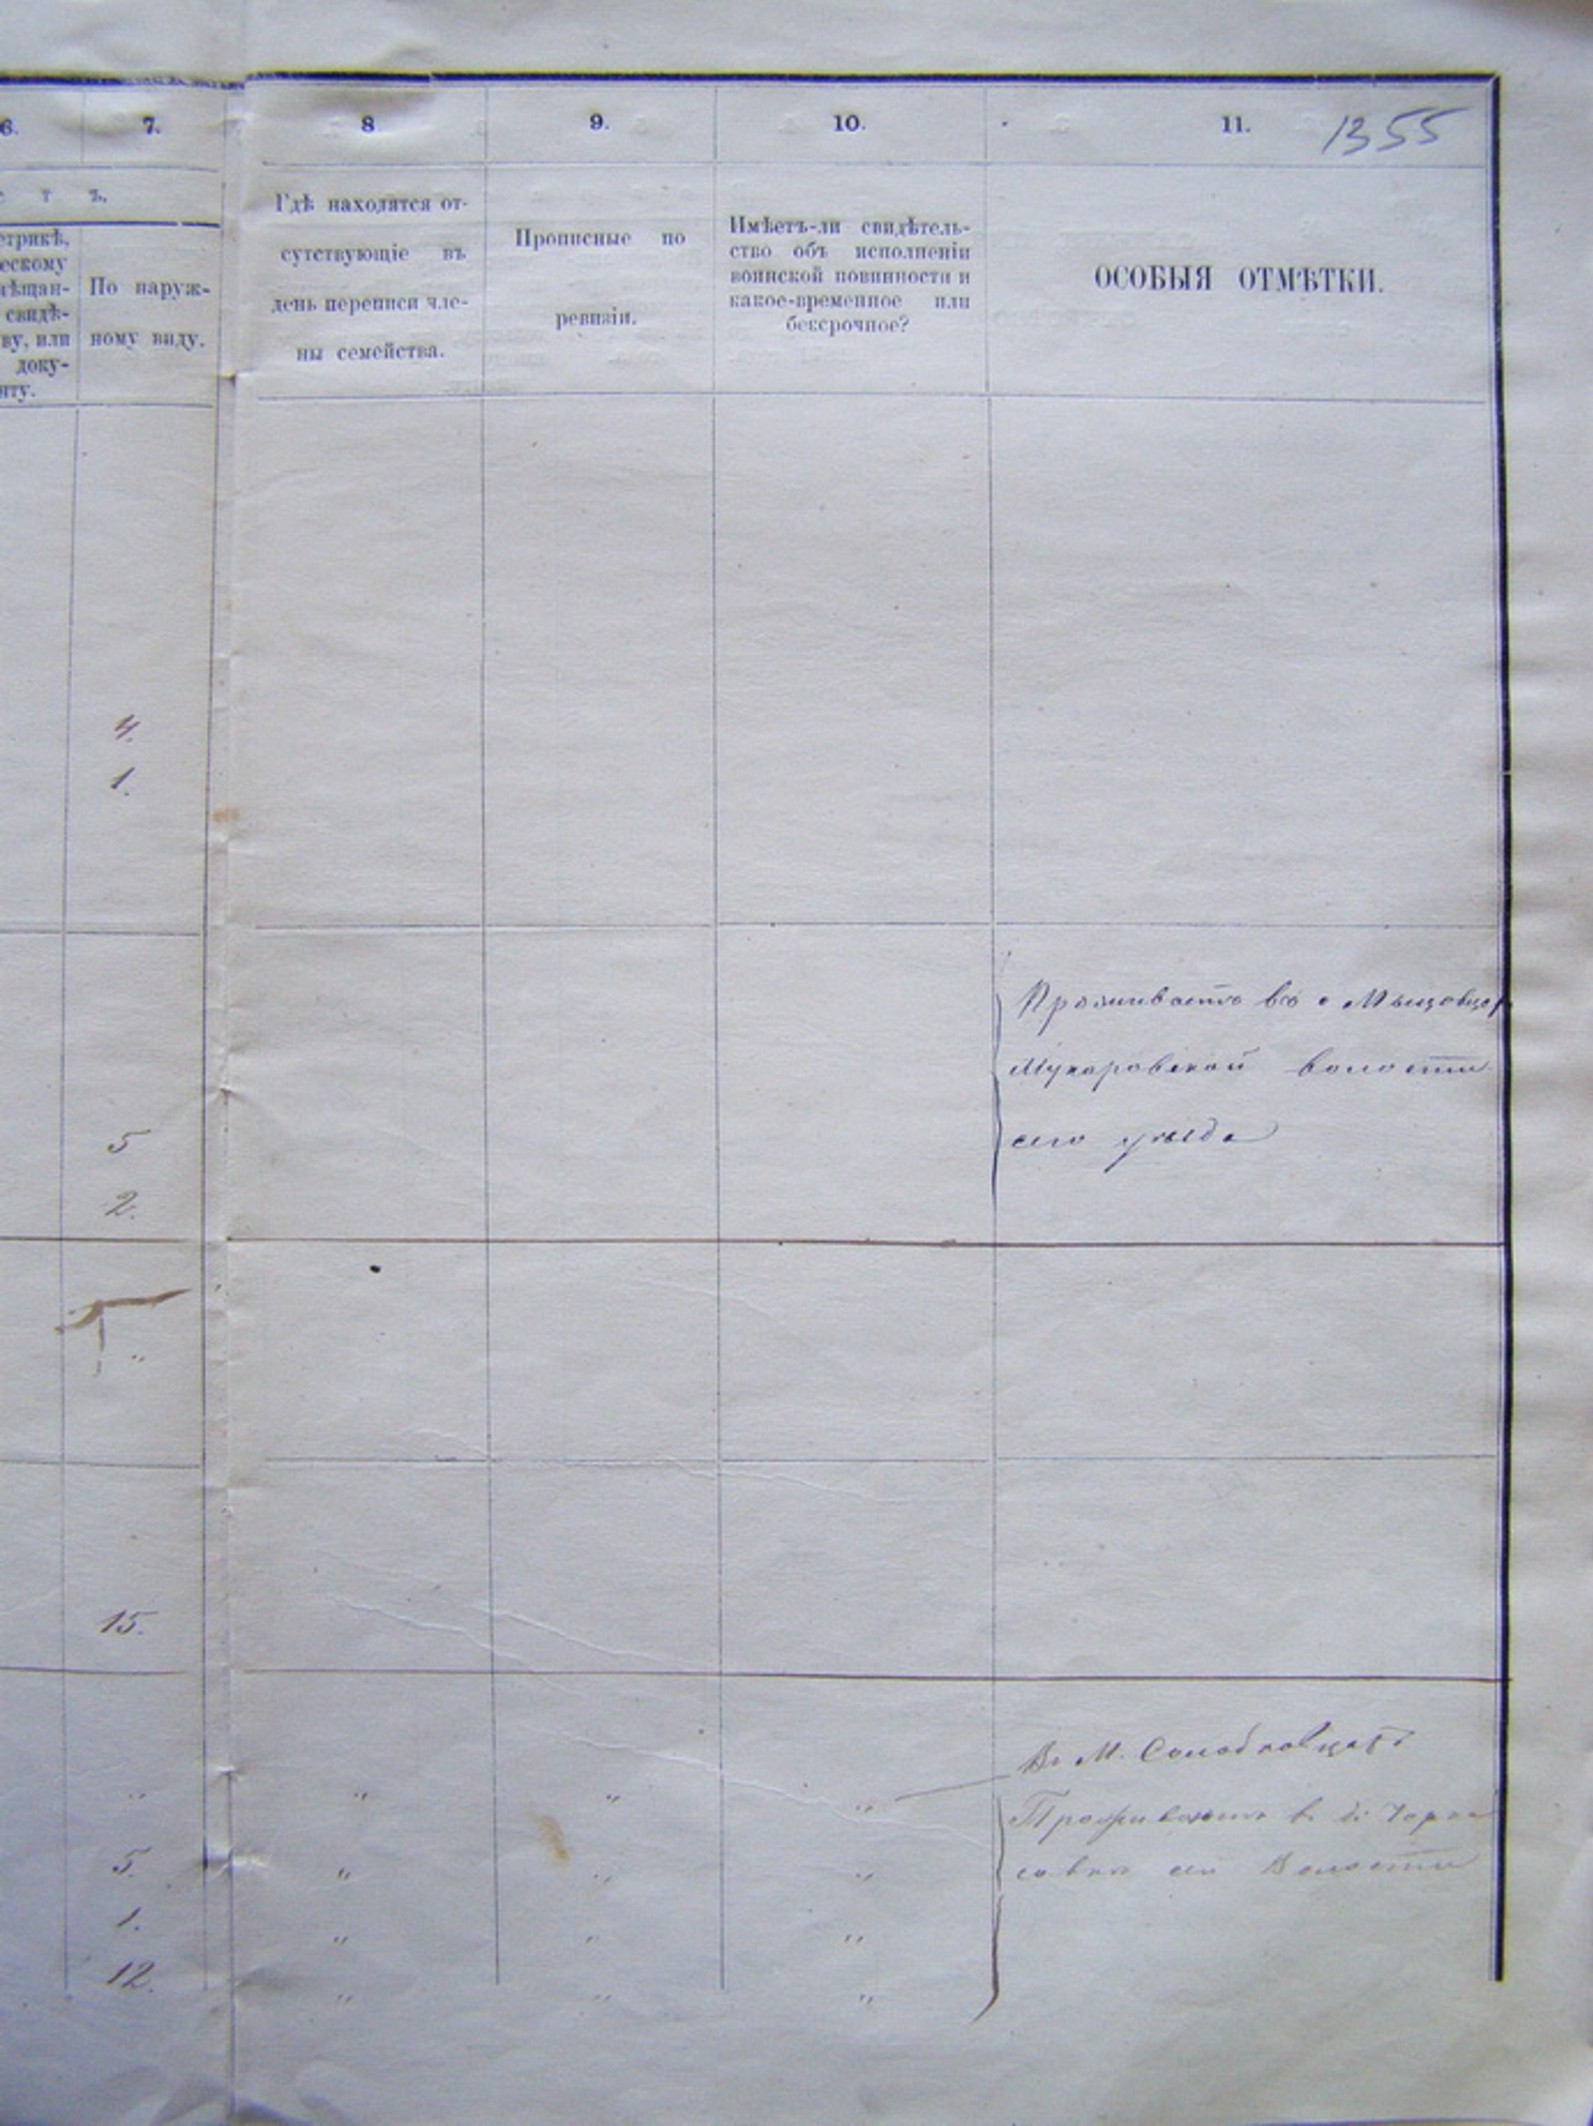 6.
7.
8
9.
10.
11.
1355
с т ъ.
етрикѣ,
ескому
мѣщан-
свидѣ-
ву, или
доку-
нту.
По наруж-
ному виду.
Гдѣ находятся от-
сутствующіе въ
день переписи чле-
ны семейства.
Прописные по
ревизіи.
Имѣетъ-ли свидѣтель-
ство объ исполненіи
воинской повинности и
какое-временное или
безсрочное?
ОСОБЫЯ ОТМѢТКИ.
4.
1.
Проживаетъ въ с Мыцовцахъ
Мукаровской волости
сего уѣзда
5
2.
"
15.
Въ М. Солобковцахъ
" " " "
Проживаетъ в. д. Чорна
5. " " "
совка сей Волости
1. " " "
12. " " "